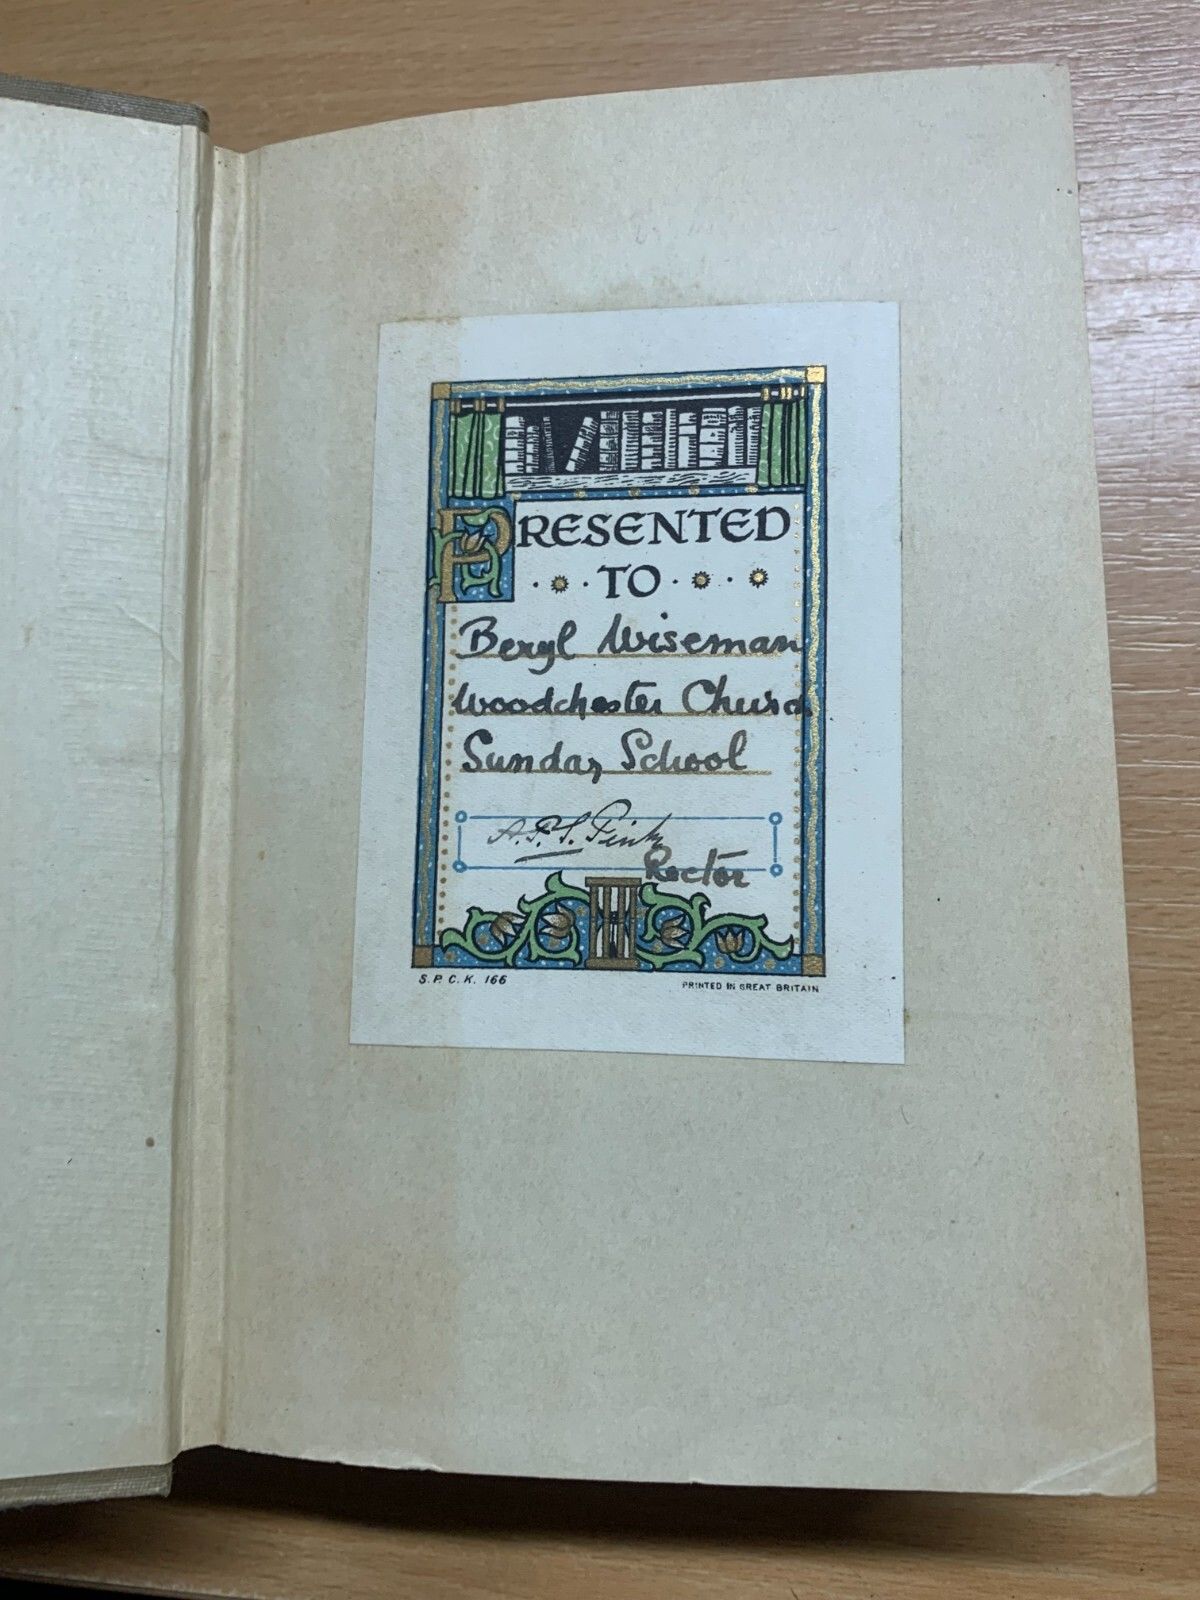 PRESENTED
TO
Beryl Wiseman
Woodchester Church
Sunday School
A.P.S. Pink
Rector
S. P. C. K. 166
PRINTED IN GREAT BRITAIN